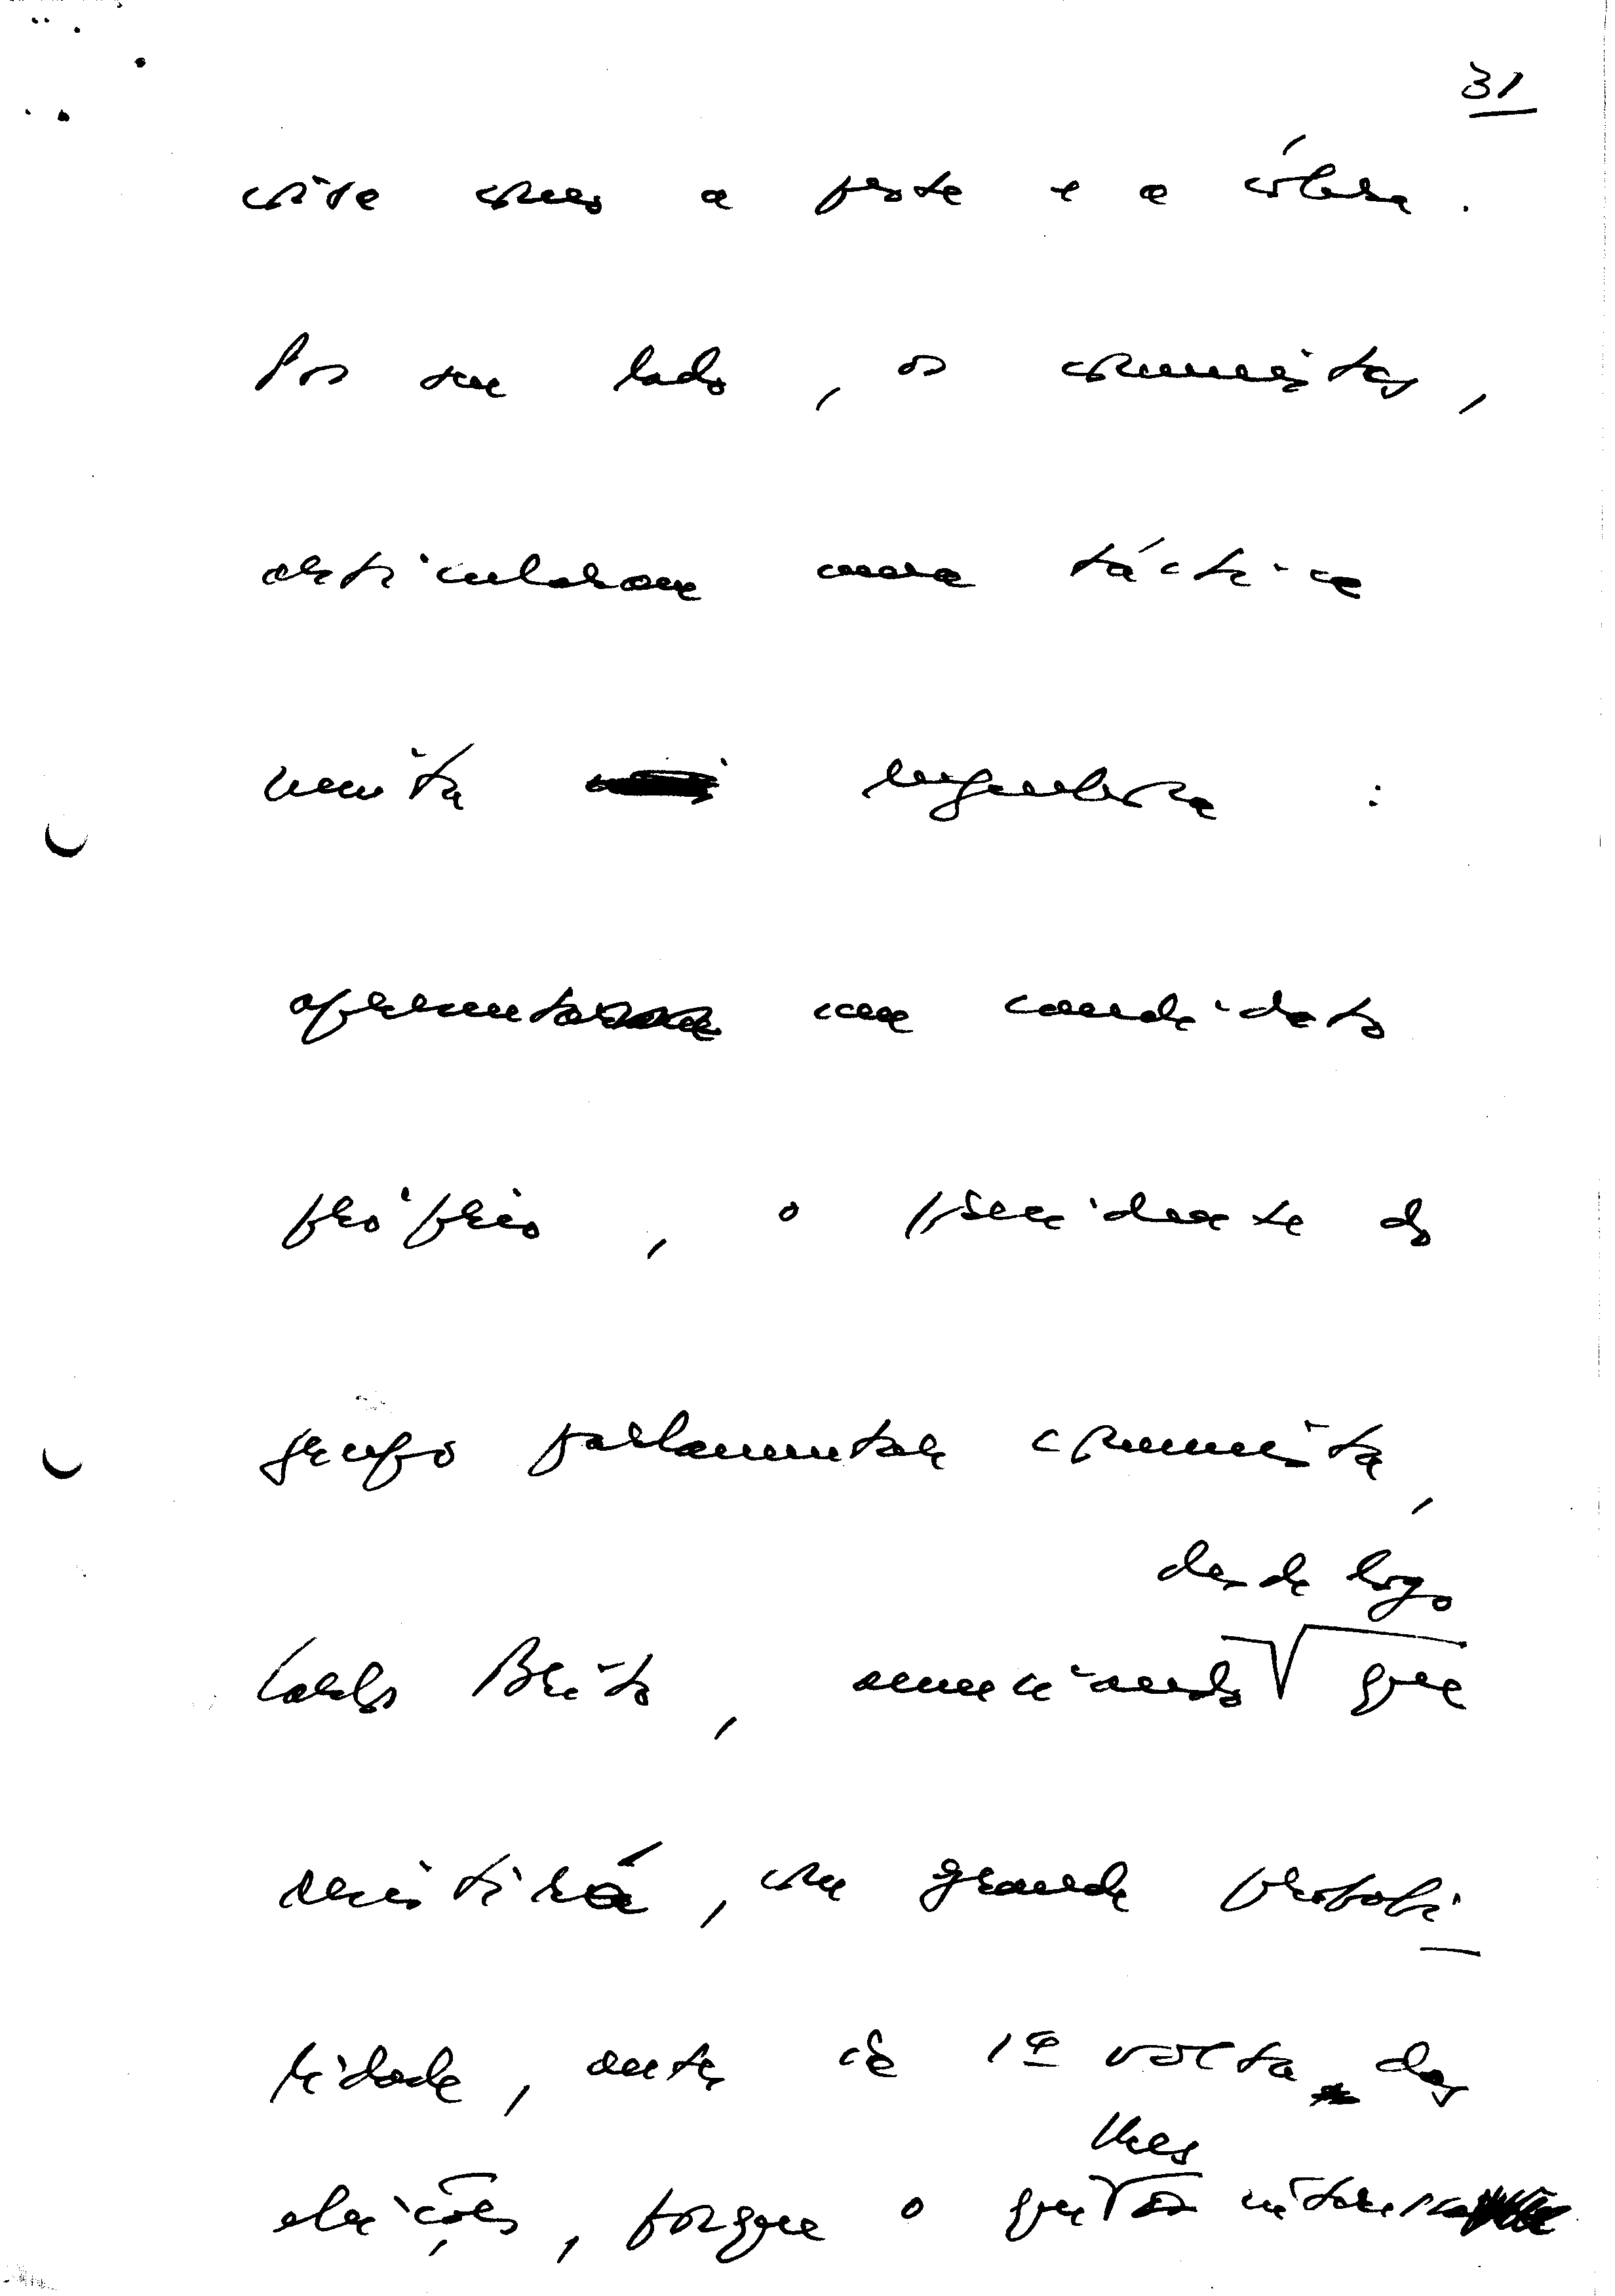 31
coisa como a peste e a cólera.
Por seu lado, os comunistas,
articularam uma táctica
muito engenhosa :
apresentaram um candidato
próprio, o presidente do
grupo parlamentar comunista,
desde logo
Carlos Brito, anunciando que
desistirá, com grande probabi_
lidade, antes da 1ª volta das
lhes
eleições, porque o que interessa